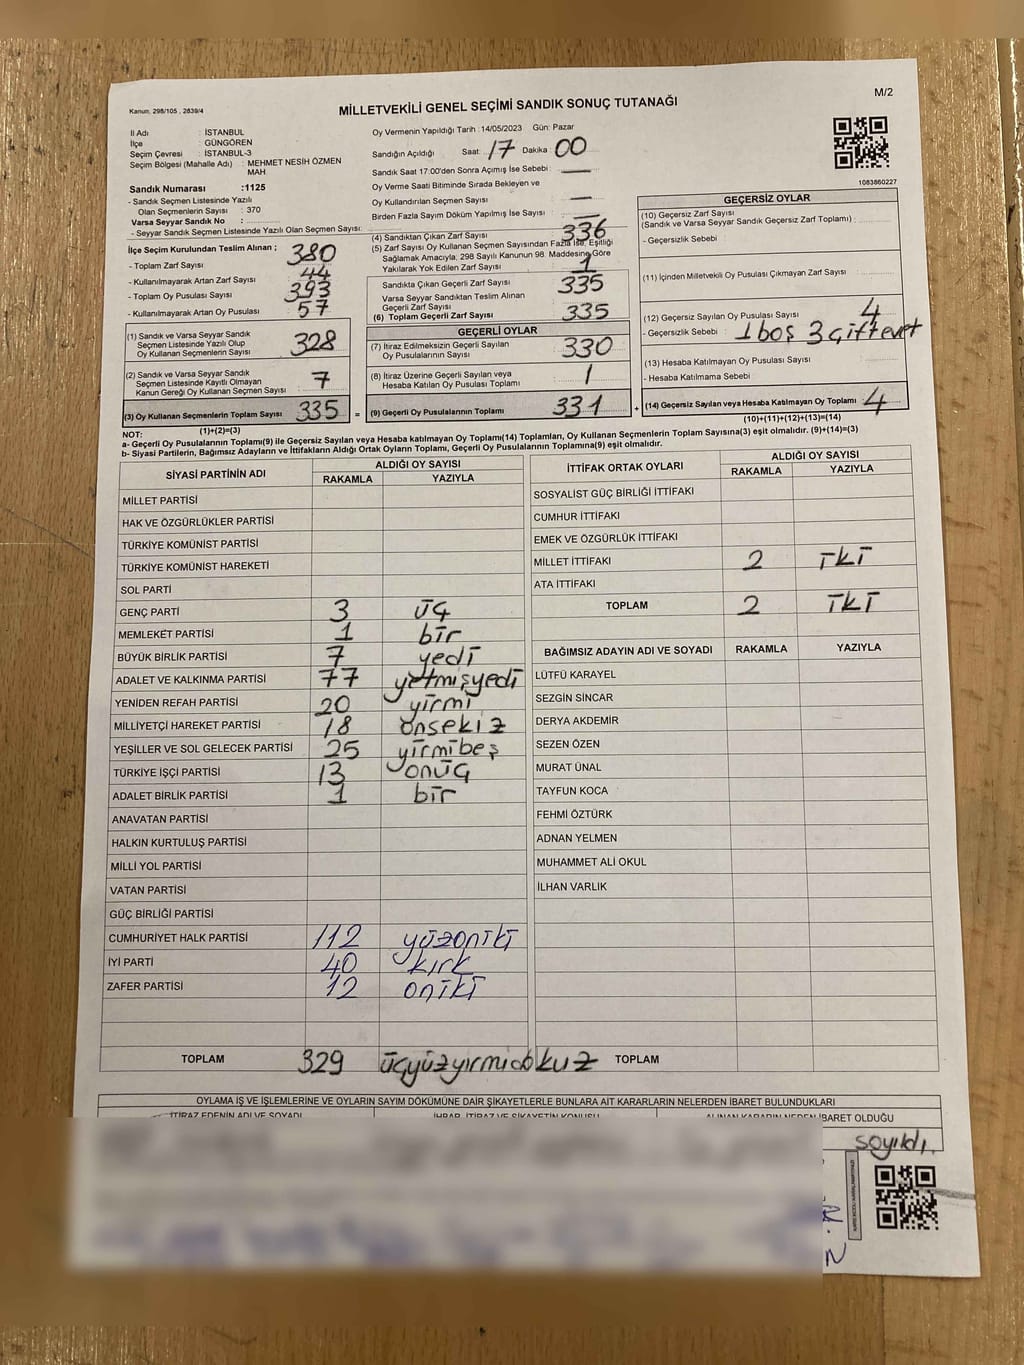 M/2
Kanun, 298/105 , 2839/4
MİLLETVEKİLİ GENEL SEÇİMİ SANDIK SONUÇ TUTANAĞI
İl Adı : İSTANBUL
İlçe : GÜNGÖREN
Seçim Çevresi : İSTANBUL-3
Seçim Bölgesi (Mahalle Adı) : MEHMET NESİH ÖZMEN MAH
Sandık Numarası :1125
- Sandık Seçmen Listesinde Yazılı
Olan Seçmenlerin Sayısı : 370
Varsa Seyyar Sandık No :
- Seyyar Sandık Seçmen Listesinde Yazılı Olan Seçmen Sayısı:
Oy Vermenin Yapıldığı Tarih :14/05/2023 Gün: Pazar
Sandığın Açıldığı Saat: 17 Dakika 00
Sandık Saat 17:00'den Sonra Açımış İse Sebebi : —
Oy Verme Saati Bitiminde Sırada Bekleyen ve
Oy Kullandırılan Seçmen Sayısı : —
Birden Fazla Sayım Döküm Yapılmış İse Sayısı : —
1083860227
İlçe Seçim Kurulundan Teslim Alınan ;
- Toplam Zarf Sayısı : 380
- Kullanılmayarak Artan Zarf Sayısı : 44
- Toplam Oy Pusulası Sayısı : 393
- Kullanılmayarak Artan Oy Pusulası : 57
(1) Sandık ve Varsa Seyyar Sandık
Seçmen Listesinde Yazılı Olup
Oy Kullanan Seçmenlerin Sayısı : 328
(2) Sandık ve Varsa Seyyar Sandık
Seçmen Listesinde Kayıtlı Olmayan
Kanun Gereği Oy Kullanan Seçmen Sayısı : 7
(3) Oy Kullanan Seçmenlerin Toplam Sayısı : 335 =
(1)+(2)=(3)
(4) Sandıktan Çıkan Zarf Sayısı : 336
(5) Zarf Sayısı Oy Kullanan Seçmen Sayısından Fazla İse, Eşitliği
Sağlamak Amacıyla, 298 Sayılı Kanunun 98. Maddesine Göre
Yakılarak Yok Edilen Zarf Sayısı : 1
Sandıkta Çıkan Geçerli Zarf Sayısı : 335
Varsa Seyyar Sandıktan Teslim Alınan
Geçerli Zarf Sayısı :
(6) Toplam Geçerli Zarf Sayısı : 335
GEÇERLİ OYLAR
(7) İtiraz Edilmeksizin Geçerli Sayılan
Oy Pusulalarının Sayısı : 330
(8) İtiraz Üzerine Geçerli Sayılan veya
Hesaba Katılan Oy Pusulası Toplamı : 1
(9) Geçerli Oy Pusulalarının Toplamı : 331 +
GEÇERSİZ OYLAR
(10) Geçersiz Zarf Sayısı
(Sandık ve Varsa Seyyar Sandık Geçersiz Zarf Toplamı) :
- Geçersizlik Sebebi :
(11) İçinden Milletvekili Oy Pusulası Çıkmayan Zarf Sayısı :
(12) Geçersiz Sayılan Oy Pusulası Sayısı : 4
- Geçersizlik Sebebi : 1 boş 3 çift evet
(13) Hesaba Katılmayan Oy Pusulası Sayısı :
- Hesaba Katılmama Sebebi :
(14) Geçersiz Sayılan veya Hesaba Katılmayan Oy Toplamı : 4
(10)+(11)+(12)+(13)=(14)
NOT:
a- Geçerli Oy Pusulalarının Toplamı(9) ile Geçersiz Sayılan veya Hesaba katılmayan Oy Toplamı(14) Toplamları, Oy Kullanan Seçmenlerin Toplam Sayısına(3) eşit olmalıdır. (9)+(14)=(3)
b- Siyasi Partilerin, Bağımsız Adayların ve İttifakların Aldığı Ortak Oyların Toplamı, Geçerli Oy Pusulalarının Toplamına(9) eşit olmalıdır.
SİYASİ PARTİNİN ADI ALDIĞI OY SAYISI
RAKAMLA YAZIYLA
MİLLET PARTİSİ
HAK VE ÖZGÜRLÜKLER PARTİSİ
TÜRKİYE KOMÜNİST PARTİSİ
TÜRKİYE KOMÜNİST HAREKETİ
SOL PARTİ
GENÇ PARTİ 3 üç
MEMLEKET PARTİSİ 1 bir
BÜYÜK BİRLİK PARTİSİ 7 yedi
ADALET VE KALKINMA PARTİSİ 77 yetmişyedi
YENİDEN REFAH PARTİSİ 20 yirmi
MİLLİYETÇİ HAREKET PARTİSİ 18 onsekiz
YEŞİLLER VE SOL GELECEK PARTİSİ 25 yirmibeş
TÜRKİYE İŞÇİ PARTİSİ 13 onüç
ADALET BİRLİK PARTİSİ 1 bir
ANAVATAN PARTİSİ
HALKIN KURTULUŞ PARTİSİ
MİLLİ YOL PARTİSİ
VATAN PARTİSİ
GÜÇ BİRLİĞİ PARTİSİ
CUMHURİYET HALK PARTİSİ 112 yüzoniki
İYİ PARTİ 40 kırk
ZAFER PARTİSİ 12 oniki
TOPLAM 329 üçyüzyirmidokuz
İTTİFAK ORTAK OYLARI ALDIĞI OY SAYISI
RAKAMLA YAZIYLA
SOSYALİST GÜÇ BİRLİĞİ İTTİFAKI
CUMHUR İTTİFAKI
EMEK VE ÖZGÜRLÜK İTTİFAKI
MİLLET İTTİFAKI 2 İKİ
ATA İTTİFAKI
TOPLAM 2 İKİ
BAĞIMSIZ ADAYIN ADI VE SOYADI RAKAMLA YAZIYLA
LÜTFÜ KARAYEL
SEZGİN SİNCAR
DERYA AKDEMİR
SEZEN ÖZEN
MURAT ÜNAL
TAYFUN KOCA
FEHMİ ÖZTÜRK
ADNAN YELMEN
MUHAMMET ALİ OKUL
İLHAN VARLIK
TOPLAM
OYLAMA İŞ VE İŞLEMLERİNE VE OYLARIN SAYIM DÖKÜMÜNE DAİR ŞİKAYETLERLE BUNLARA AİT KARARLARIN NELERDEN İBARET BULUNDUKLARI
İTİRAZ EDENİN ADI VE SOYADI İHBAR, İTİRAZ VE ŞİKAYETİN KONUSU ALINAN KARARIN NEDEN İBARET OLDUĞU
sayıldı.